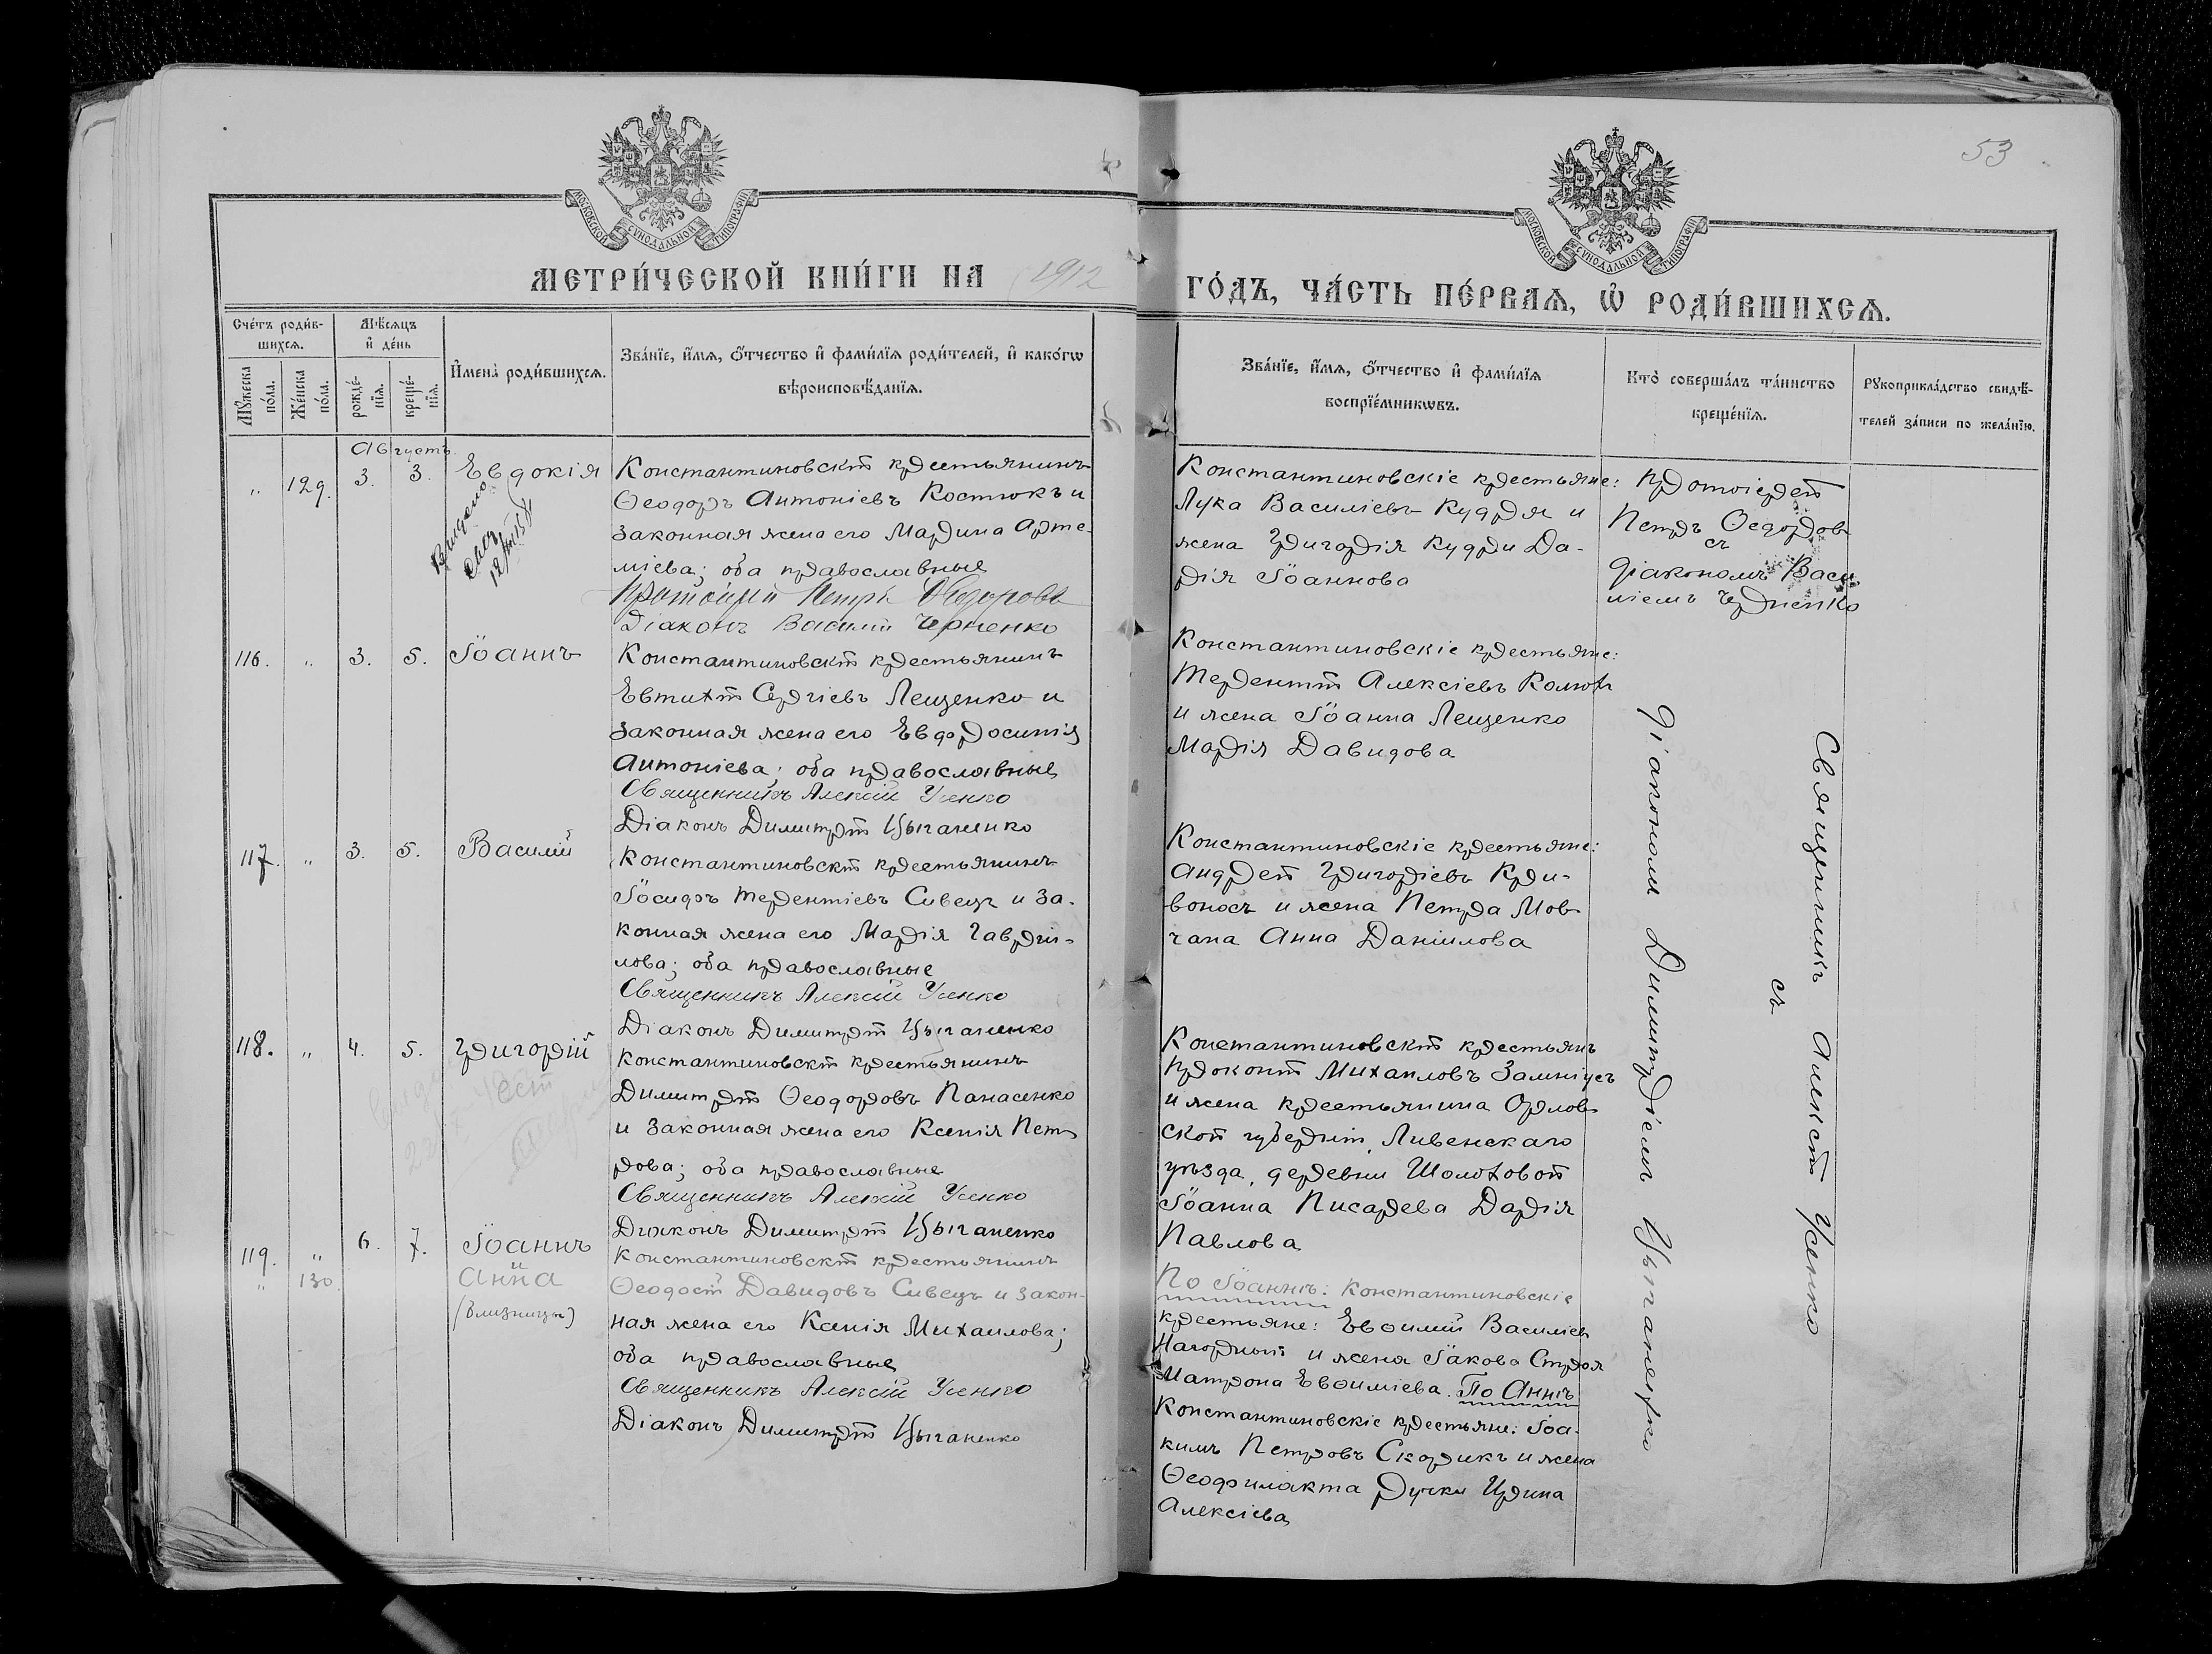 53
МОСКОВСКОЙ СѴНОДАЛЬНОЙ ТИПОГРАФІИ
МОСКОВСКОЙ СѴНОДАЛЬНОЙ ТИПОГРАФІИ
МЕТРИ́ЧЕСКОЙ КНИ́ГИ НА 1912 ГО́ДЪ, ЧА́СТЬ ПЕ́РВАѦ, Ѡ҆ РОДИ́ВШИХСѦ.
Сче́тъ роди́в-
шихсѧ.
Мѣ́сѧцъ
и҆ де́нь
Мꙋ́жеска
по́ла.
Же́нска
по́ла.
рожде́-
нїѧ.
креще́-
нїѧ.
И҆мена̀ роди́вшихсѧ.
Зва́нїе, и҆́мѧ, ѻ҆́тчество и҆ фами́лїѧ роди́телей, и҆ како́гѡ
вѣроисповѣ́данїѧ.
Зва́нїе, и҆́мѧ, ѻ҆́тчество и҆ фами́лїѧ
воспрїе́мникѡвъ.
Кто̀ соверша́лъ та́инство
креще́нїѧ.
Рꙋкоприкла́дство свидѣ́-
телей за́писи по жела́нїю.
Августъ
" 129. 3. 3. Евдокія
Константиновскій крестьянинъ
Ѳеодоръ Антоніевъ Костюкъ и
законная жена его Марина Арте-
міева; оба православные
Протоіерей Петръ Ѳедоровъ
Діаконъ Василій Черненко
Константиновскіе крестьяне:
Лука Василіевъ Кудря и
жена Григорія Кудри Да-
рія Іоаннова
Протоіерей
Петръ Ѳеодоровъ
съ
діакономъ Васи
ліемъ Черненко
116. " 3. 5. Іоаннъ
Константиновскій крестьянинъ
Евтихій Сергіевъ Лещенко и
законная жена его Евфросинія
Антоніева; оба православные
Священникъ Алексій Усенко
Діаконъ Димитрій Цыганенко
Константиновскіе крестьяне:
Терентій Алексіевъ
и жена Іоанна Лещенко
Марія Давидова
117. " 3. 5. Василій
Константиновскій крестьянинъ
Іосифъ Терентіевъ Сивецъ и за-
конная жена его Марія Гаврги-
лова; оба православные
Священникъ Алексій Усенко
Діаконъ Димитрій Цыганенко
Константиновскіе крестьяне:
Андрей Григоріевъ Кри-
воносъ и жена Петра Мов-
чана Анна Даніилова
118. " 4. 5. Григорій
Константиновскій крестьянинъ
Димитрій Ѳеодоровъ Панасенко
и законная жена его Ксенія Пет
рова; оба православные
Священникъ Алексій Усенко
Діаконъ Димитрій Цыганенко
Константиновскій крестьян
Прокопій Михаиловъ
и жена крестьянина Орлов
ской губерніи, Ливенскаго
уѣзда, деревни Шолоховой
Іоанна Писарева Дарія
Павлова
119. " 6. 7. Іоаннъ
" 130. Анна
(близнецы)
Константиновскій крестьянинъ
Ѳеодосій Давидовъ Сивецъ и закон-
ная жена его Ксенія Михаилова;
оба православные
Священникъ Алексій Усенко
Діаконъ Димитрій Цыганенко
По Іоаннѣ: Константиновскіе
крестьяне: Евѳимій Василіев
Нагорный и жена Іакова Строя
Матрона Евѳиміева. По Аннѣ
Константиновскіе крестьяне: Іоа-
кимъ Петровъ Скорикъ и жена
Ѳеофилакта Дучки Ирина
Алексіева
Священникъ Алексій Усенко
съ
діакономъ Димитріемъ Цыганенко